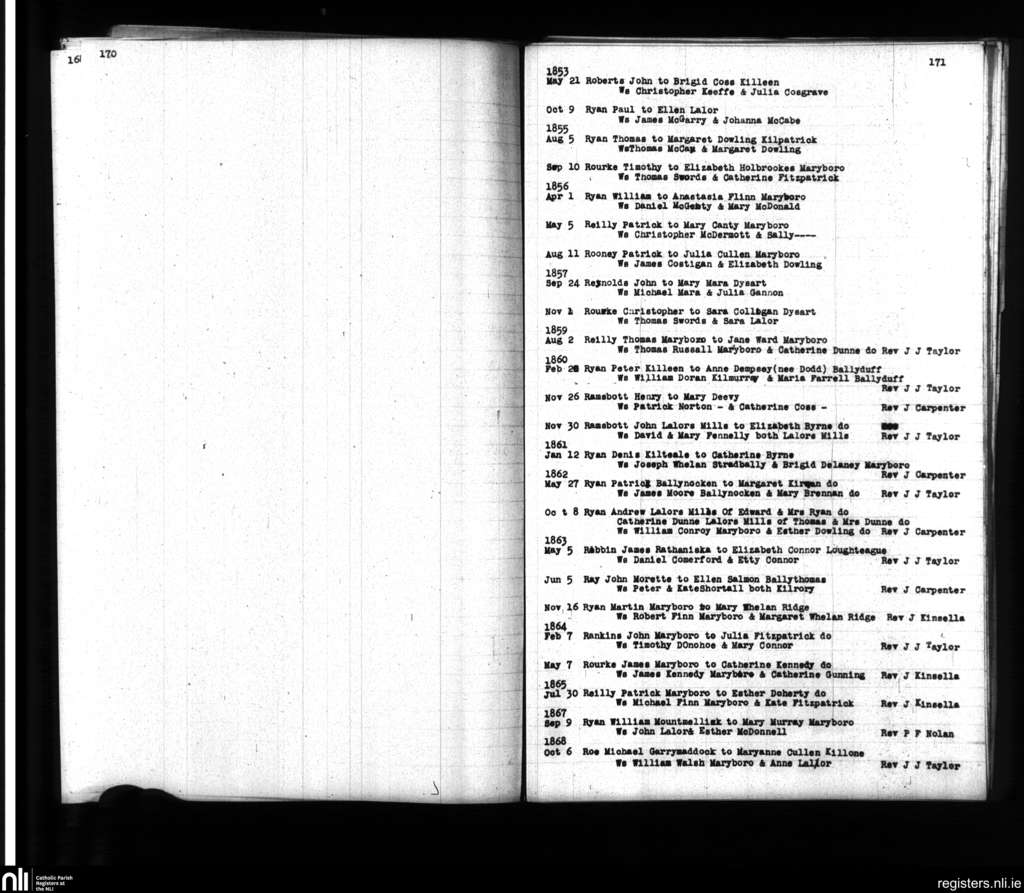 161
170
171
1853
May 21 Roberts John to Brigid Coss Killeen
Ws Christopher Keeffe & Julia Cosgrave
Oct 9 Ryan Paul to Ellen Lalor
Ws James McGarry & Johanna McCabe
1855
Aug 5 Ryan Thomas to Margaret Dowling Kilpatrick
WsThomas & Margaret Dowling
Sep 10 Rourke Timothy to Elizabeth Holbrookes Maryboro
Ws Thomas Swords & Catherine Fitzpatrick
1856
Apr 1 Ryan William to Anastasia Flinn Maryboro
Ws Daniel & Mary McDonald
May 5 Reilly Patrick to Mary Canty Maryboro
Ws Christopher McDermott & Sally----
Aug 11 Rooney Patrick to Julia Cullen Maryboro
Ws James Costigan & Elizabeth Dowling
1857
Sep 24 Reynolds John to Mary Mara Dysart
Ws Michael Mara & Julia Gannon
Nov 1 Rourke Christopher to Sara Colligan Dysart
Ws Thomas Swords & Sara Lalor
1859
Aug 2 Reilly Thomas Maryboro to Jane Ward Maryboro
Ws Thomas Russall Maryboro & Catherine Dunne do Rev J J Taylor
1860
Feb Ryan Peter Killeen to Anne Dempsey(nee Dodd) Ballyduff
Ws William Doran Kilmurray & Maria Farrell Ballyduff
Rev J J Taylor
Nov 26 Ramsbott Henry to Mary Deevy
Ws Patrick Norton - & Catherine Coss - Rev J Carpenter
Nov 30 Ramsbott John Lalors Mills to Elizabeth Byrne do
Ws David & Mary Fennelly both Lalors Mills Rev J J Taylor
1861
Jan 12 Ryan Denis Kilteale to Catherine Byrne
Ws Joseph Whelan Stradbally & Brigid Delaney Maryboro
Rev J Carpenter
1862
May 27 Ryan Patrick Ballynocken to Margaret Kirwan do
Ws James Moore Ballynocken & Mary Brennan do Rev J J Taylor
Oc t 8 Ryan Andrew Lalors Mills Of Edward & Mrs Ryan do
Catherine Dunne Lalors Mills of Thomas & Mrs Dunne do
Ws William Conroy Maryboro & Esther Dowling do Rev J Carpenter
1863
May 5 Robbin James Rathaniska to Elizabeth Connor Loughteague
Ws Daniel Comerford & Etty Connor Rev J J Taylor
Jun 5 Ray John Morette to Ellen Salmon Ballythomas
Ws Peter & KateShortall both Kilrory Rev J Carpenter
Nov 16 Ryan Martin Maryboro to Mary Whelan Ridge
Ws Robert Finn Maryboro & Margaret Whelan Ridge Rev J Kinsella
1864
Feb 7 Rankins John Maryboro to Julia Fitzpatrick do
Ws Timothy DOnohoe & Mary Connor Rev J J Taylor
May 7 Rourke James Maryboro to Catherine Kennedy do
Ws James Kennedy Maryboro & Catherine Gunning Rev J Kinsella
1865
Jul 30 Reilly Patrick Maryboro to Esther Doherty do
Ws Michael Finn Maryboro & Kate Fitzpatrick Rev J Kinsella
1867
Sep 9 Ryan William Mountmellick to Mary Murray Maryboro
Ws John Lalor& Esther McDonnell Rev P F Nolan
1868
Oct 6 Roe Michael Garrymaddock to Maryanne Cullen Killone
Ws William Walsh Maryboro & Anne Lallor Rev J J Taylor
nli
Catholic Parish
Registers at
the NLI
registers.nli.ie